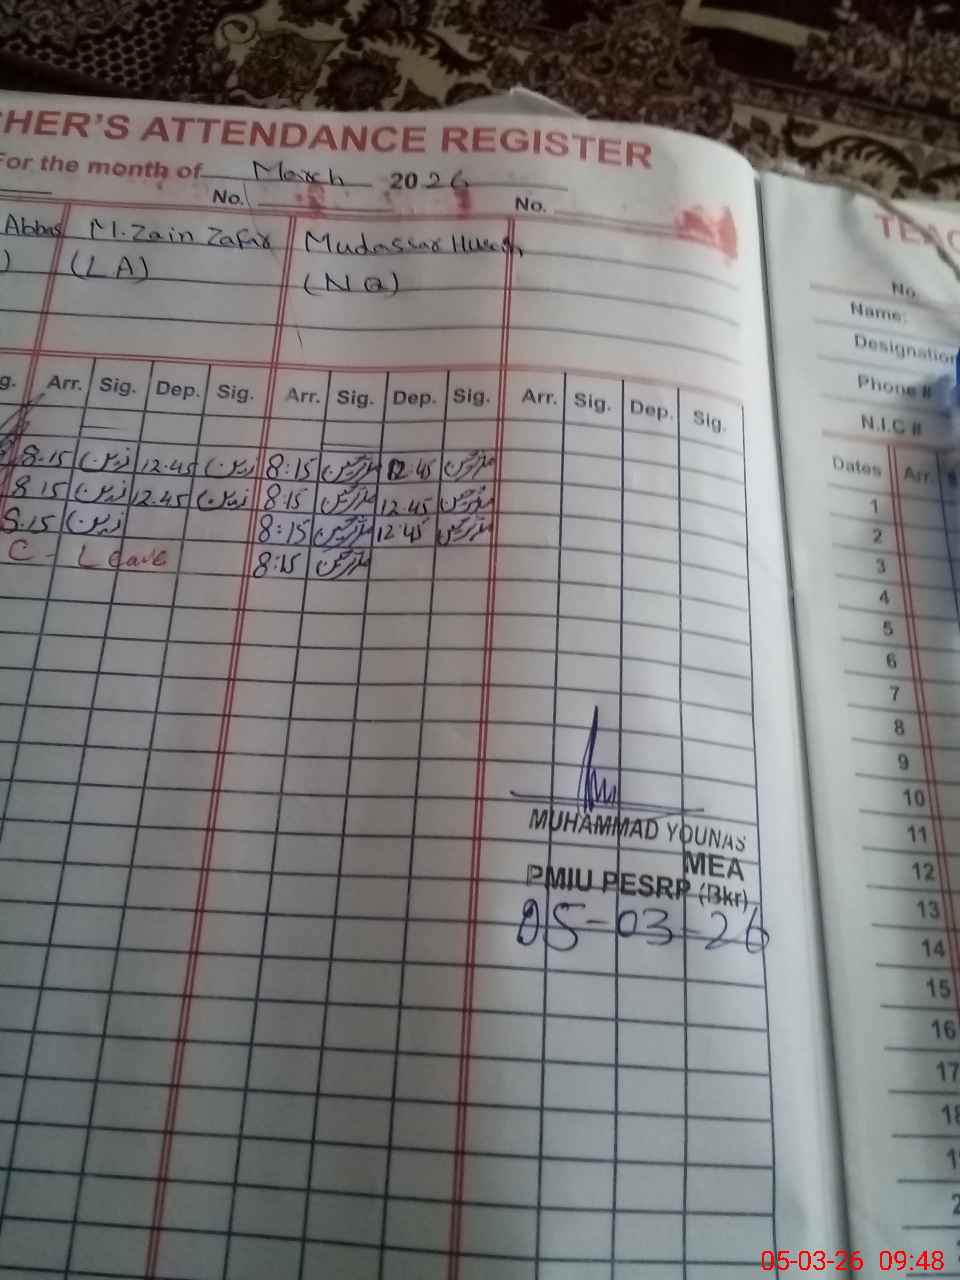 HER'S ATTENDANCE REGISTER
For the month of March 2026
No. No.
Abbas M.Zain Zafar Mudassar
) (LA) (NQ)
g. Arr. Sig. Dep. Sig. Arr. Sig. Dep. Sig. Arr. Sig. Dep. Sig.
8.15 زین 12.45 زین 8:15 مدثر حسین 12:45 مدثر حسین
8 15 زین 12.45 زین 8:15 مدثر حسین 12.45 مدثر حسین
8.15 زین 8:15 مدثر حسین 12:45 مدثر حسین
C - Leave 8:15 مدثر حسین
MUHAMMAD YOUNAS
MEA
PMIU PESRP (Bkr)
05-03-26
TEAC
No.
Name:
Designation
Phone #
N.I.C #
Dates Arr.
1
2
3
4
5
6
7
8
9
10
11
12
13
14
15
16
17
18
05-03-26 09:48